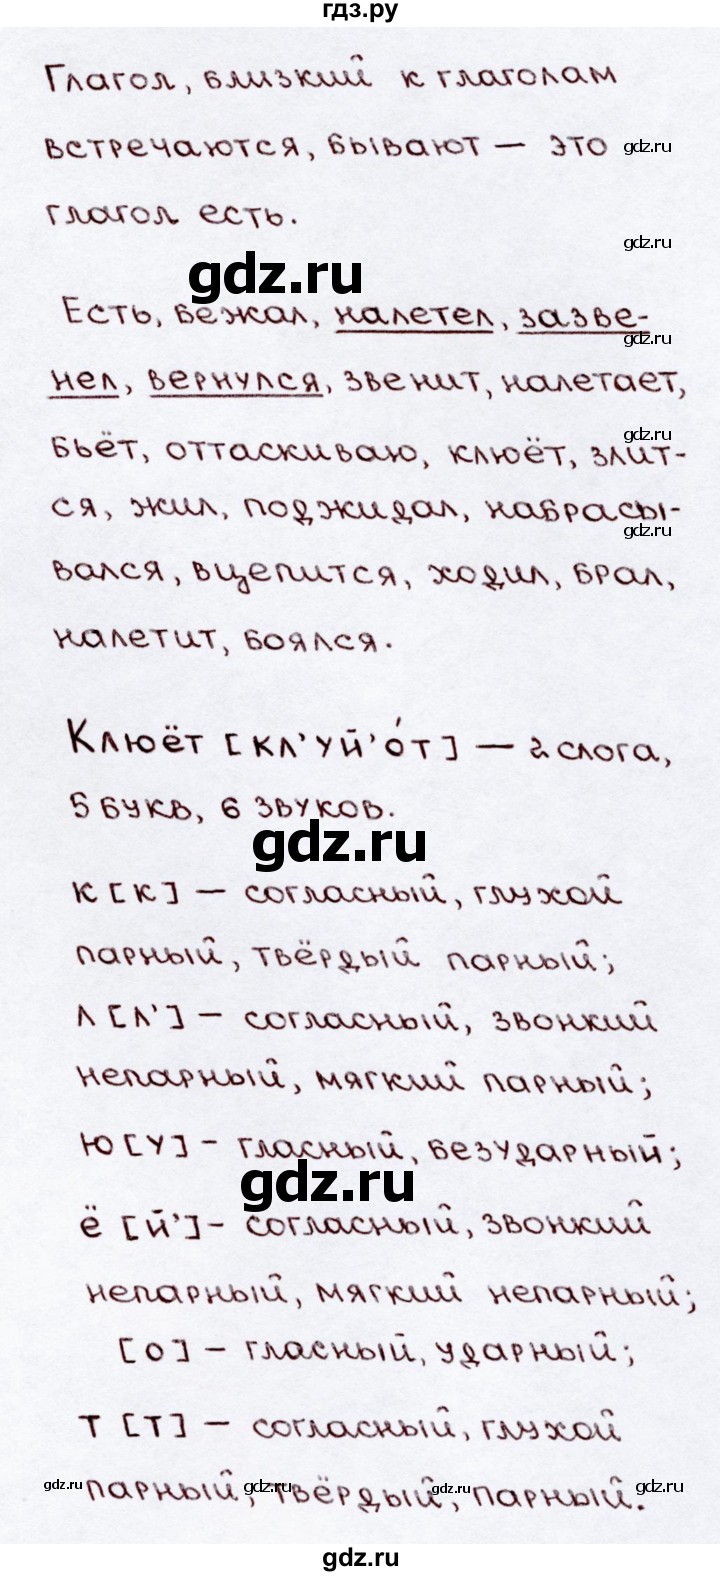 гдз.ру
Глагол, близкий к глаголам
встречаются, бывают — это
gdz.ru
глагол есть.
gdz.ru
gdz.ru
Есть, бежал, налетел, зазве-
gdz.ru
нел, вернулся, звенит, налетает,
gdz.ru
бьёт, оттаскиваю, клюёт, злит-
ся, жил, поджидал, набрасы-
gdz.ru
вался, вцепится, ходил, брал,
налетит, боялся.
Клюёт [кл'уй'о́т] — 2 слога,
5 букв, 6 звуков.
gdz.ru
к [к] — согласный, глухой
парный, твёрдый парный;
л [л'] — согласный, звонкий
непарный, мягкий парный;
ю [у] - гласный, безударный;
gdz.ru
ё [й'] - согласный, звонкий
непарный, мягкий непарный;
[о] — гласный, ударный;
т [т] — согласный, глухой
парный, твёрдый, парный.
gdz.ru gdz.ru gdz.ru gdz.ru
gdz.ru